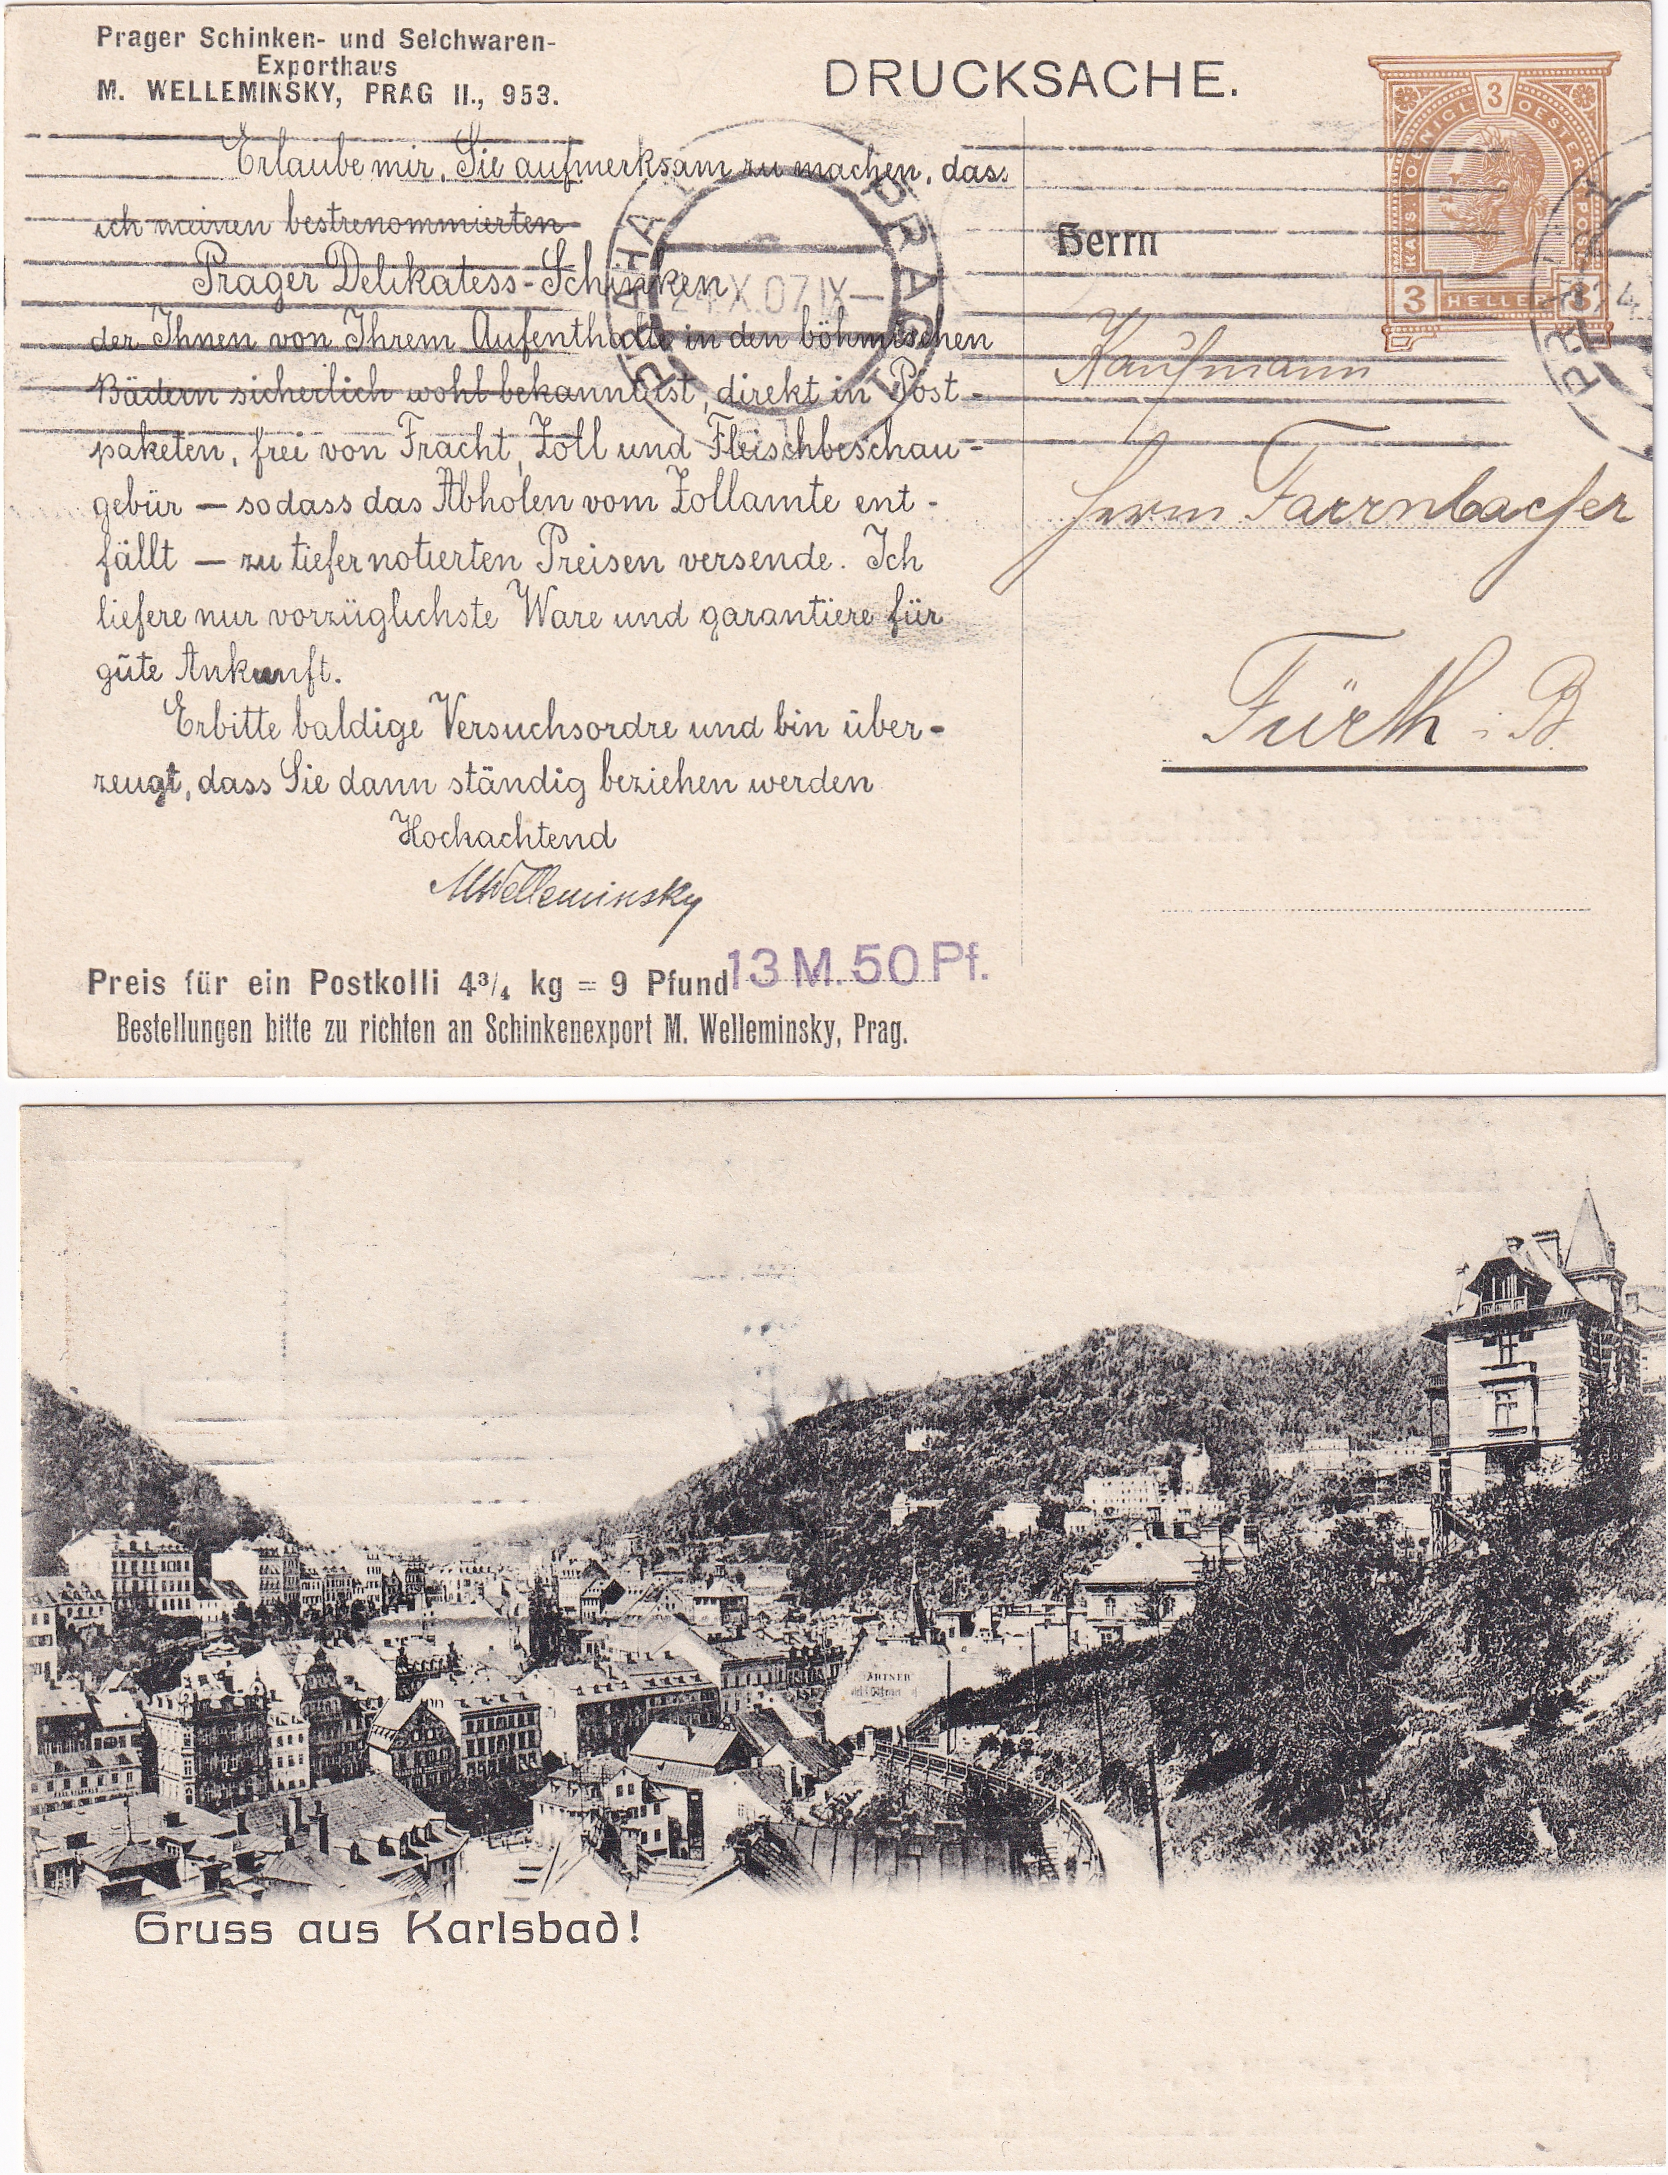 Prager Schinken- und Selchwaren-
Exporthaus
M. WELLEMINSKY, PRAG II., 953.
DRUCKSACHE.
Erlaube mir, Sie aufmerksam zu machen, dass
ich meinen bestrenommierten
Prager Delikatess-Schinken
der Ihnen von Ihrem Aufenthalte in den böhmischen
Bädern sicherlich wohl bekannt ist, direkt in Post-
paketen, frei von Fracht, Zoll und Fleischbeschau-
gebür — sodass das Abholen vom Zollamte ent-
fällt — zu tiefer notierten Preisen versende. Ich
liefere nur vorzüglichste Ware und garantiere für
gute Ankunft.
Erbitte baldige Versuchsordre und bin über-
zeugt, dass Sie dann ständig beziehen werden
Hochachtend
MWelleminsky
Preis für ein Postkolli 4¾ kg = 9 Pfund 13 M. 50 Pf.
Bestellungen bitte zu richten an Schinkenexport M. Welleminsky, Prag.
3
KAIS. KOENIGL. OESTERR. POST
3 HELLER 3
PRAHA PRAG
24.X.07.IX—
Herrn
Kaufmann
Herrn Farrnbacher
Fürth i. B.
ARTNER
Gruss aus Karlsbad!